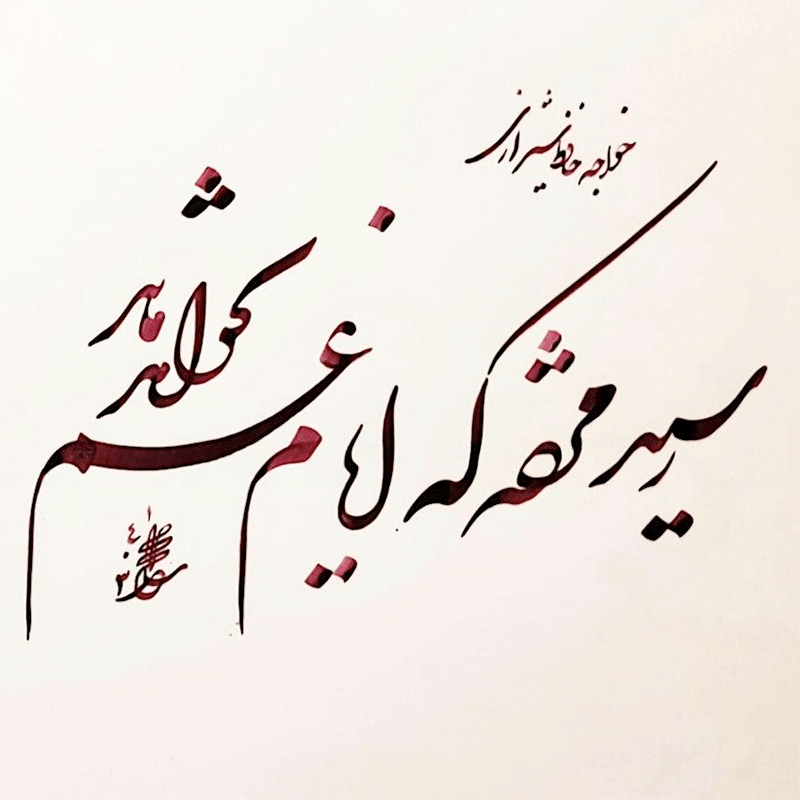 خواجه حافظ شیرازی
رسید مژده که ایام غم نخواهد ماند